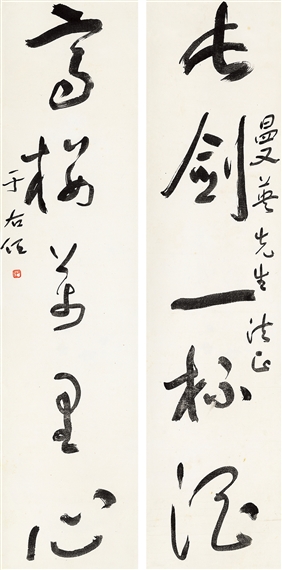 长剑一杯酒
曼英先生法正
高楼万里心
于右任